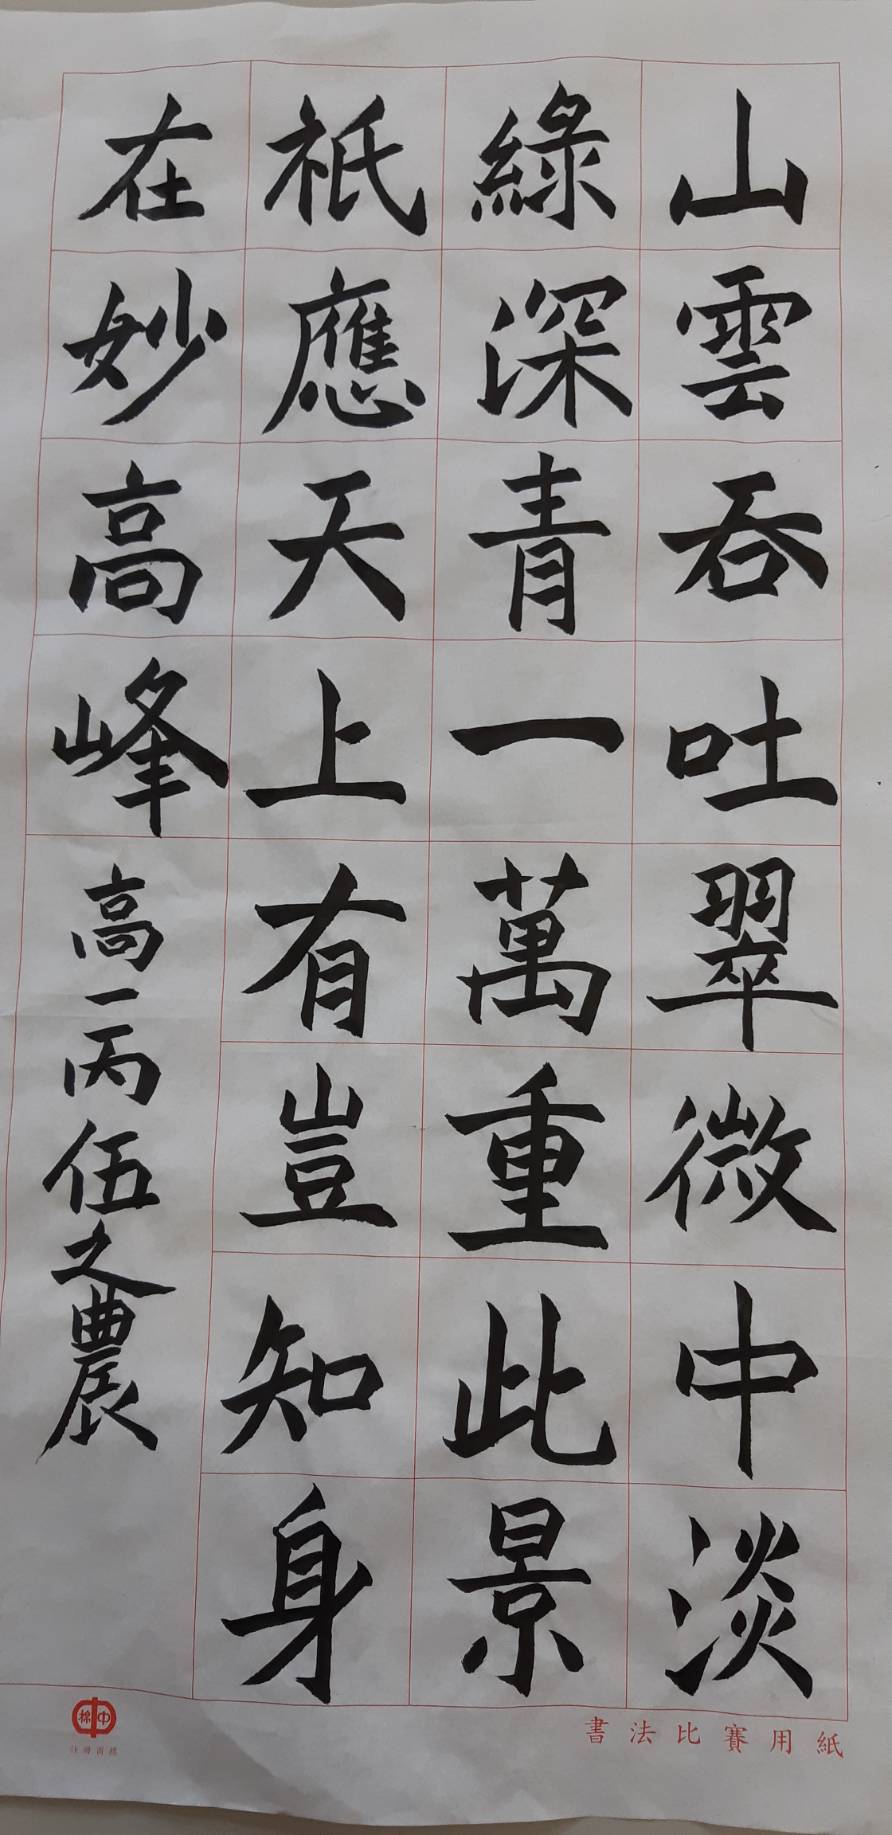 山雲吞吐翠微中淡
綠深青一萬重此景
祇應天上有豈知身
在妙高峰
高一丙伍之農
書法比賽用紙
中棉
註冊商標